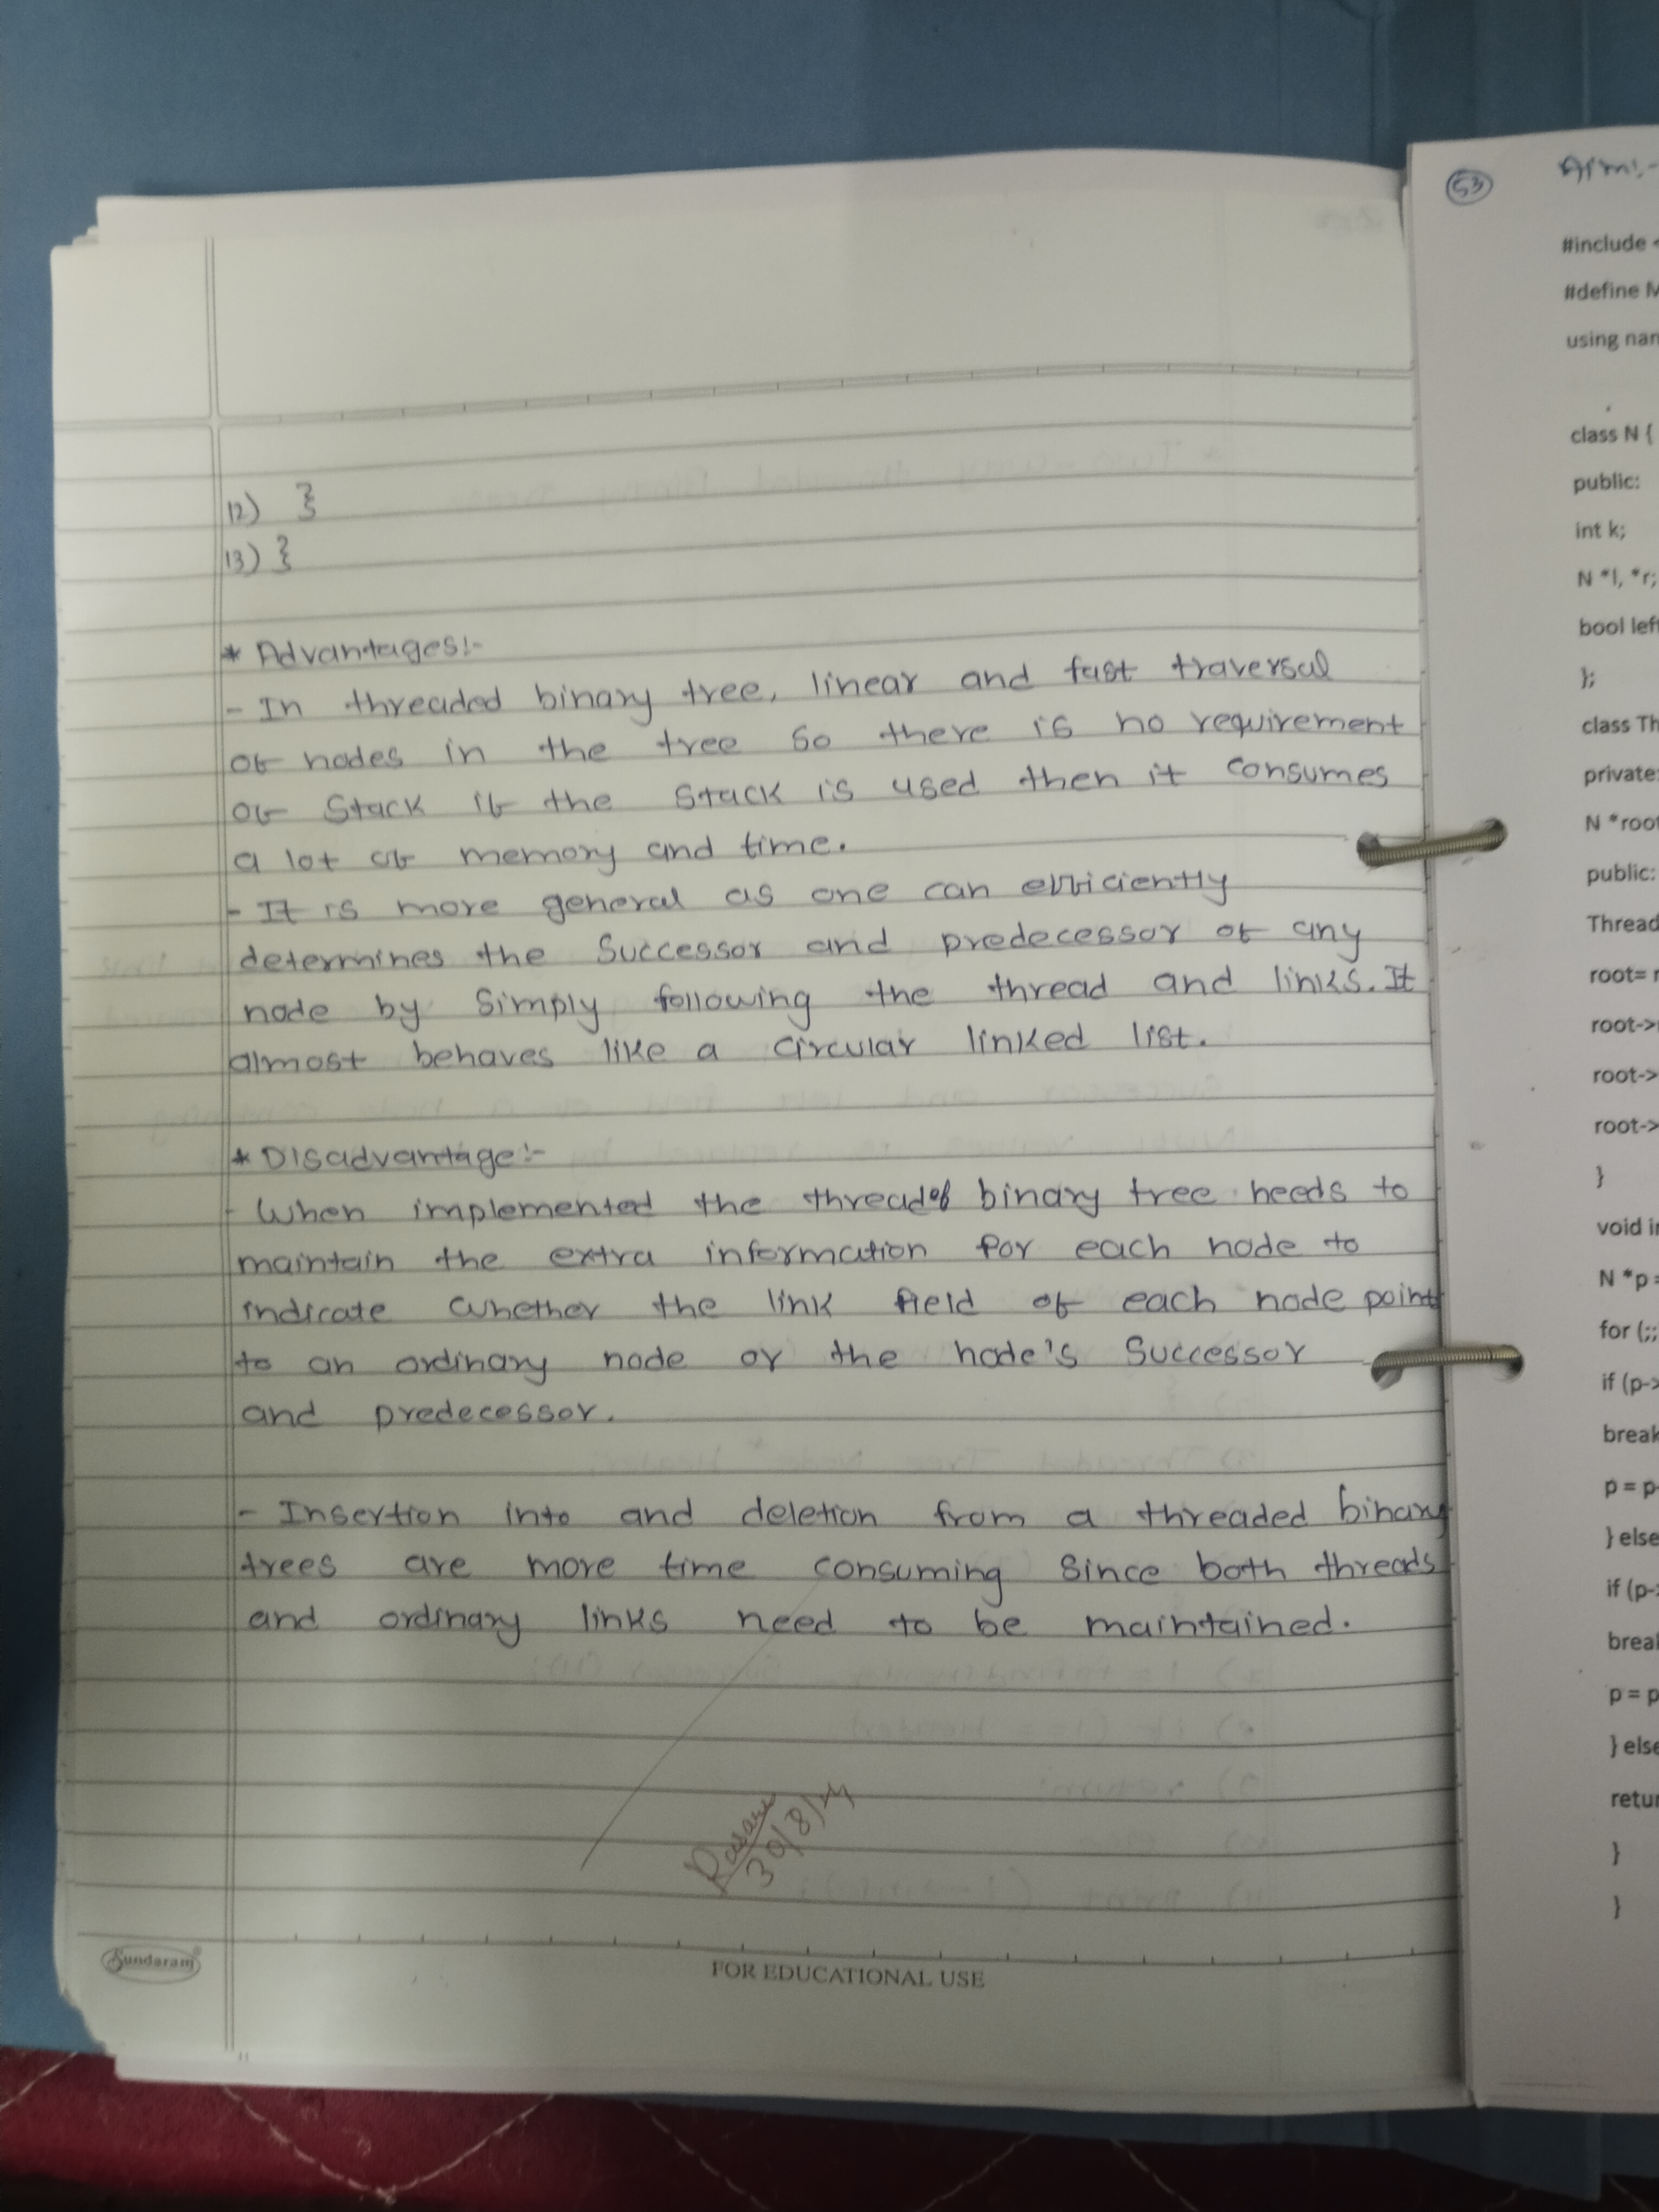 12) }
13) }
* Advantages:-
- In threaded binary tree, linear and fast traversal
of nodes in the tree so there is no requirement
of stack if the stack is used then it consumes
a lot of memory and time.
- It is more general as one can efficiently
determines the successor and predecessor of any
node by simply following the thread and links. It
almost behaves like a circular linked list.
* Disadvantage:-
- When implemented the threaded binary tree needs to
maintain the extra information for each node to
indicate whether the link field of each node points
to an ordinary node or the node's successor
and predecessor.
- Insertion into and deletion from a threaded binary
trees are more time consuming since both threads
and ordinary links need to be maintained.
30/8/24
Sundaram
FOR EDUCATIONAL USE
53
Aim:-
#include <
#define M
using nam
class N {
public:
int k;
N *l, *r;
bool left
};
class Th
private:
N *root
public:
Thread
root= n
root->
root->
root->
}
void in
N *p =
for (;;
if (p->
break
p = p-
} else
if (p->
break
p = p
} else
retur
}
}